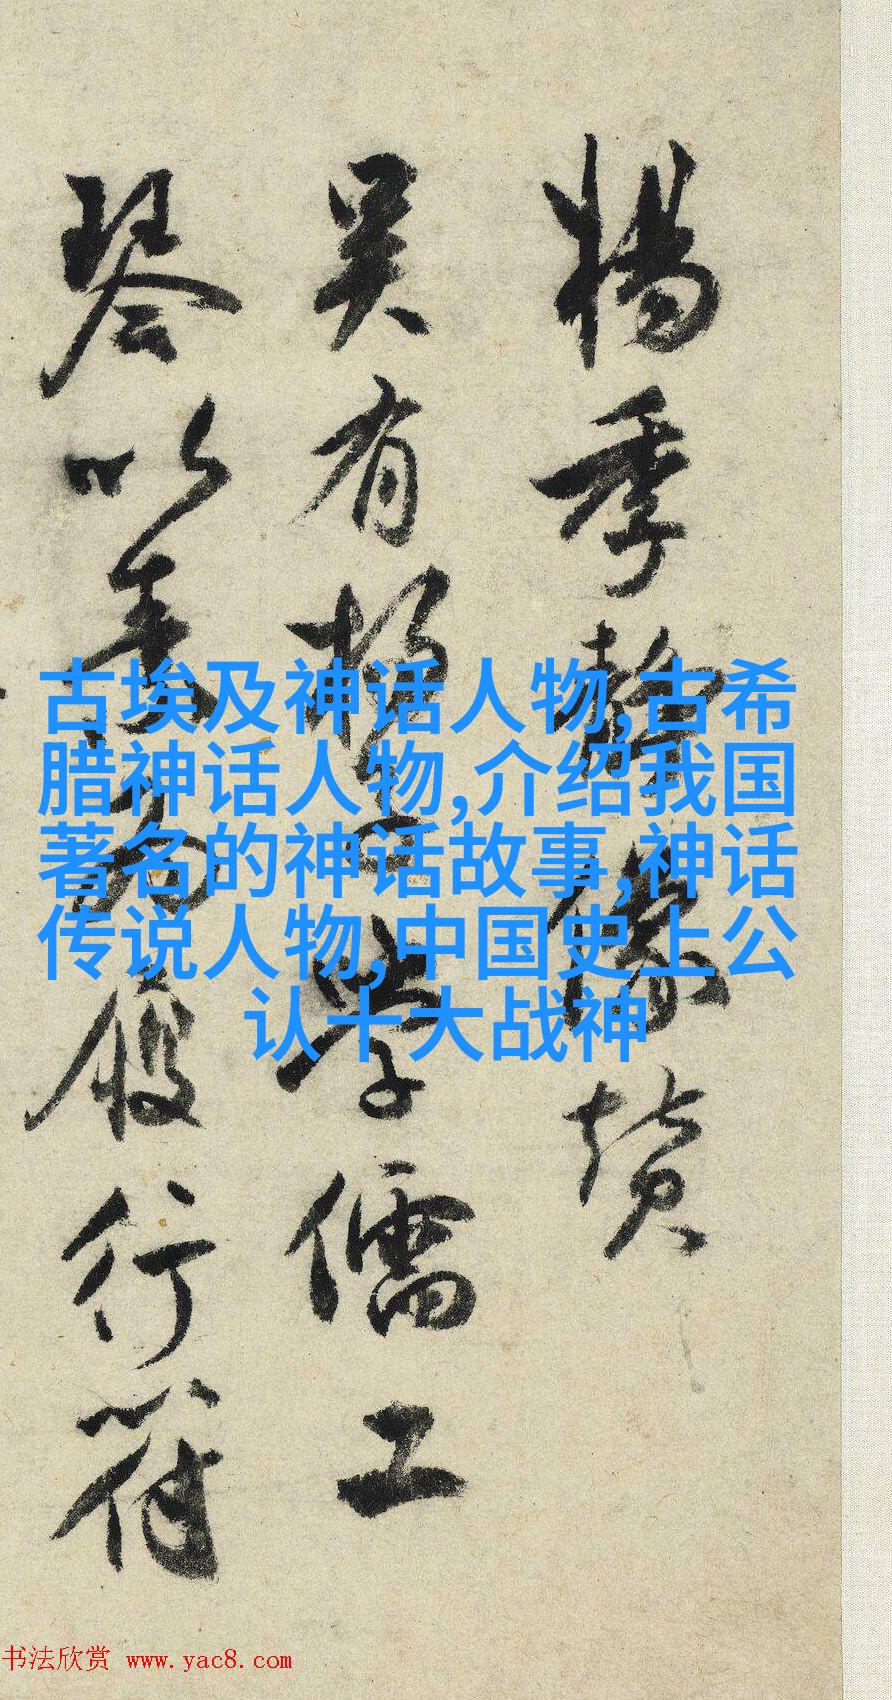 楊季靜像贊
吴有楊士學儒工
琴以善為履行符
古埃及神话人物,古希
腊神话人物,介绍我国
著名的神话故事,神话
传说人物,中国史上公
认十大战神
书法欣赏 www.yac8.com